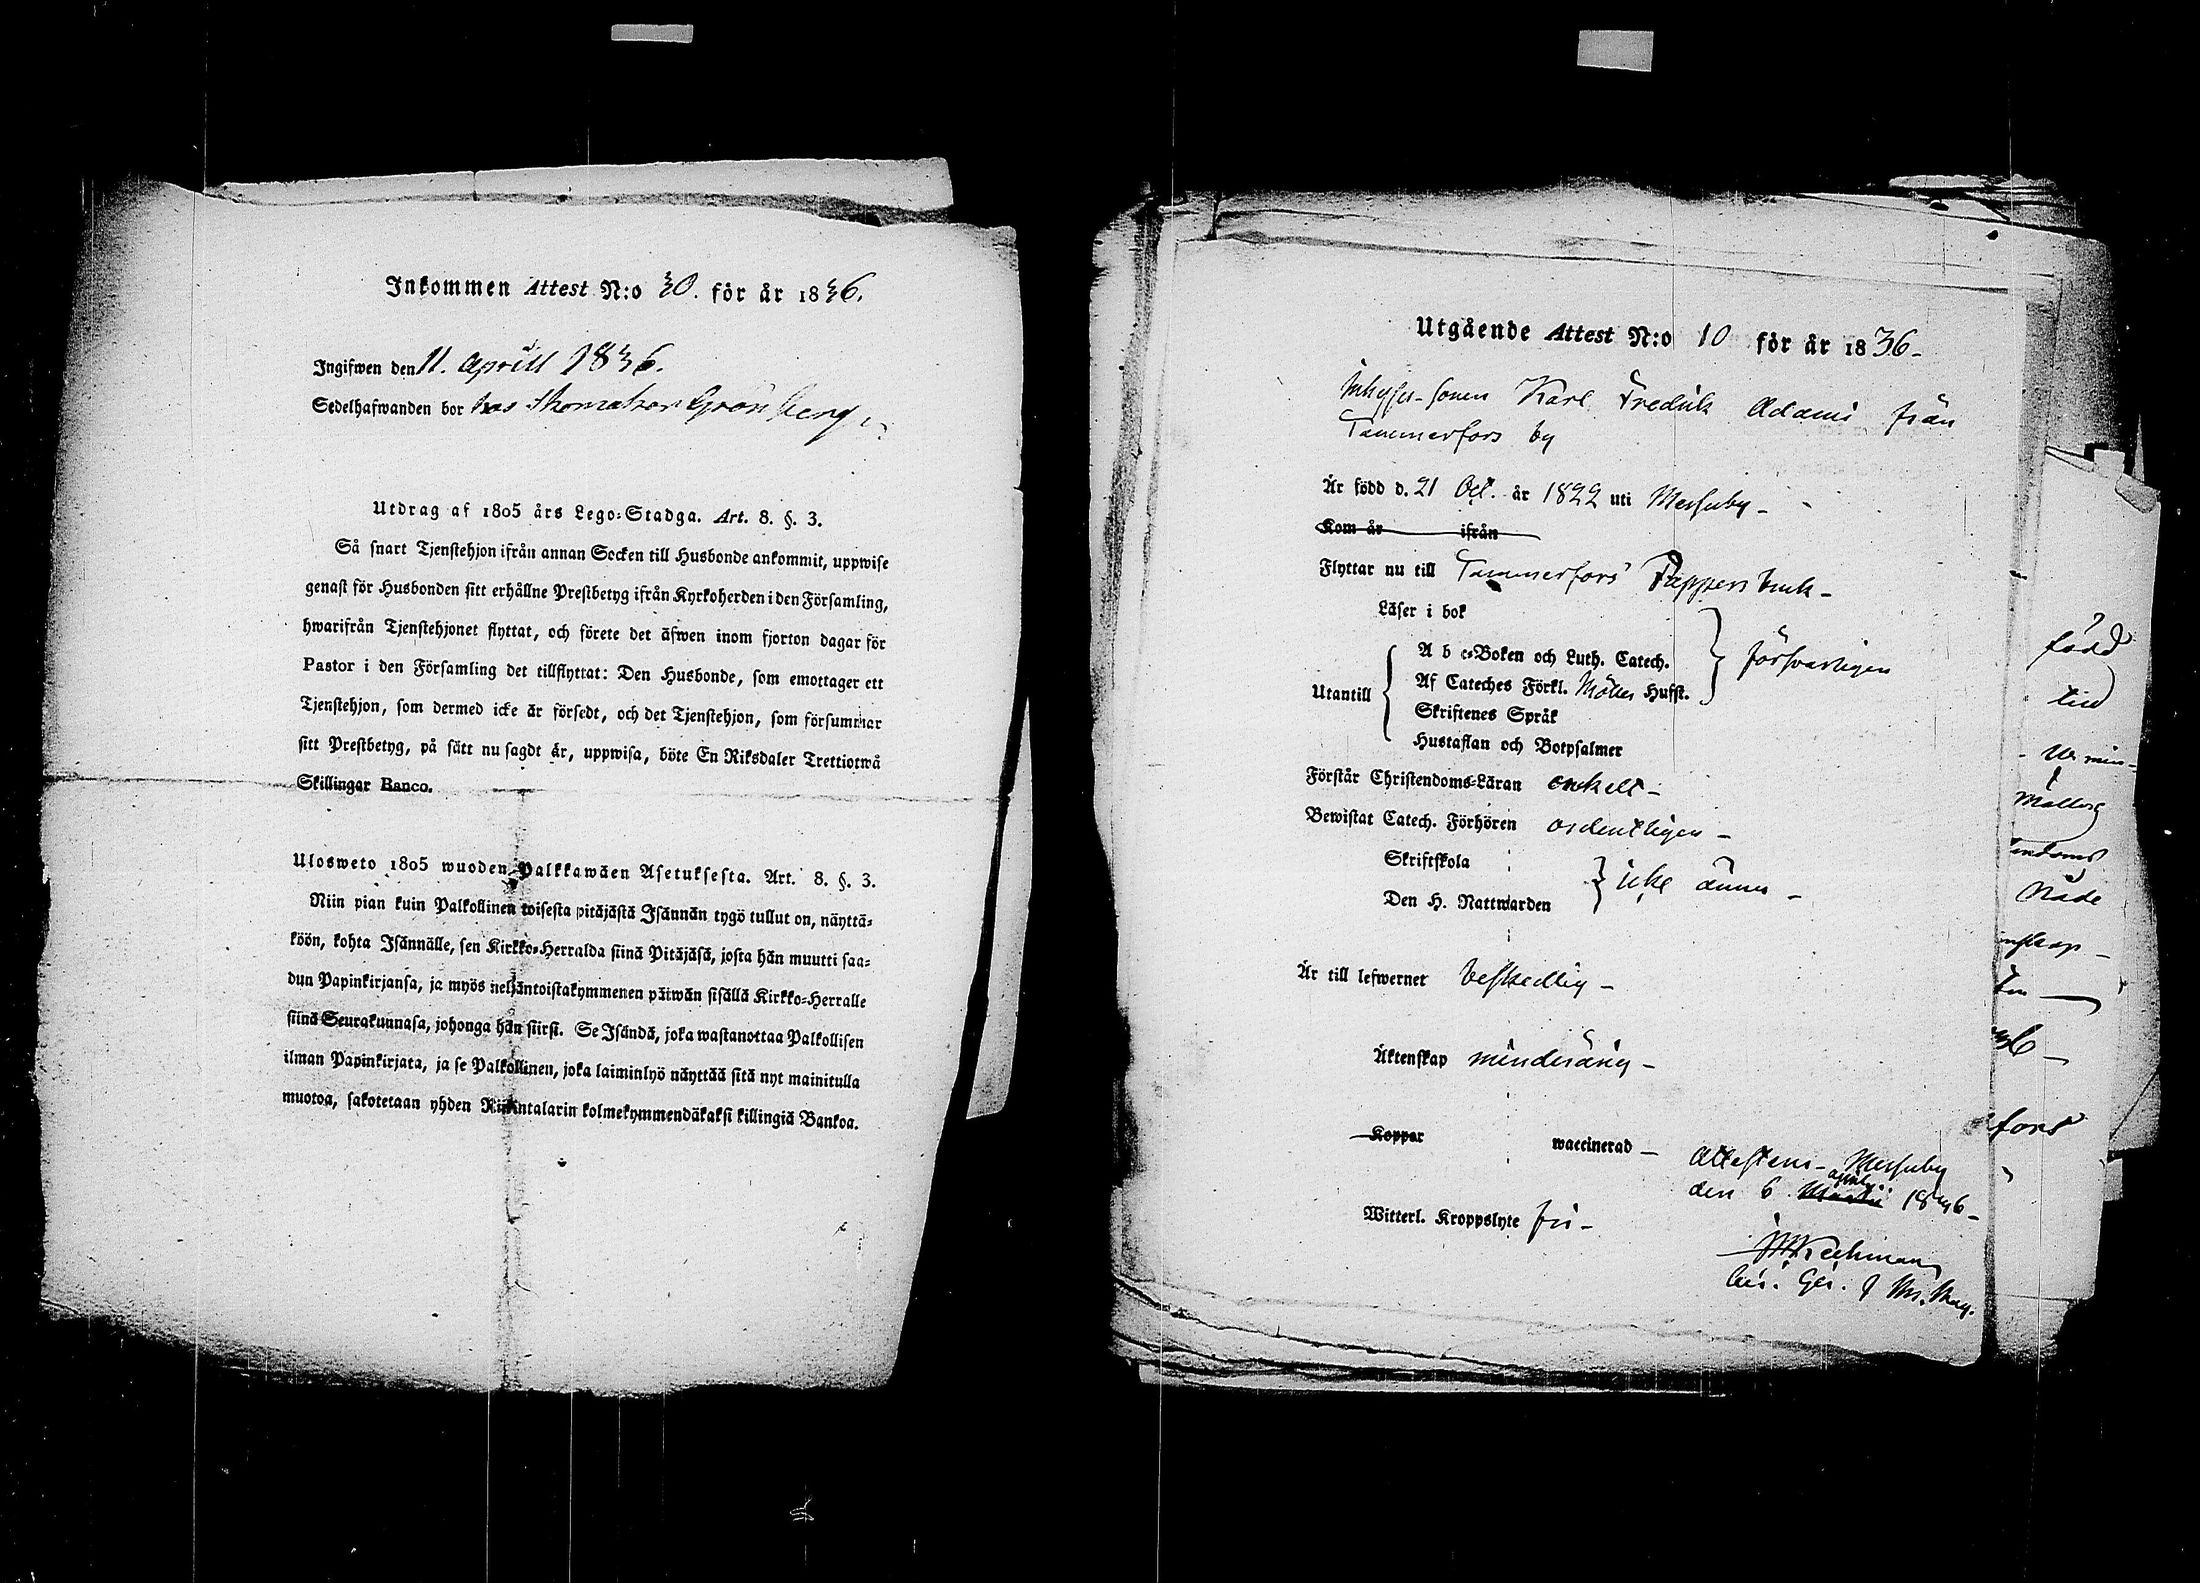 Inkommen Attest N:o 30. för år 1836.
Ingifwen den 11. Aprill 1836.
Sedelhafwanden bor hos Skomakar Grönberg.
Utdrag af 1805 års Lego-Stadga. Art. 8. §. 3.
Så snart Tjenstehjon ifrån annan Socken till Husbonde ankommit, uppwise
genast för Husbonden sitt erhållne Prestbetyg ifrån Kyrkoherden i den Församling,
hwarifrån Tjenstehjonet flyttat, och förete det äfwen inom fjorton dagar för
Pastor i den Församling det tillflyttat: Den Husbonde, som emottager ett
Tjenstehjon, som dermed icke är försedt, och det Tjenstehjon, som försummar
sitt Prestbetyg, på sätt nu sagdt är, uppwisa, böte En Riksdaler Trettiotwå
Skillingar Banco.
Ulosweto 1805 wuoden Palkkawäen Asetuksesta. Art. 8. §. 3.
Niin pian kuin Palkollinen toisesta pitäjästä Isännän tygö tullut on, näyttä-
köön, kohta Isännälle, sen Kirkko-Herralda siinä Pitäjäsä, josta hän muutti saa-
dun Papinkirjansa, ja myös neljäntoistakymmenen päiwän sisällä Kirkko-Herralle
siinä Seurakunnasa, johonga hän siirsi. Se Isändä, joka wastanottaa Palkollisen
ilman Papinkirjata, ja se Palkollinen, joka laiminlyö näyttää sitä nyt mainitulla
muotoa, sakotetaan yhden Riikintalarin kolmekymmendäkaksi killingiä Bankoa.
Utgående Attest N:o 10 för år 1836-
Inhyses-sonen Karl Fredrik Adams från
Tammerfors by
Är född d. 21 Oct. år 1822 uti Messuby-
Kom år ifrån
Flyttar nu till Tammerfors Pappersbruk-
Läser i bok
A b c-Boken och Luth. Catech.
försvarligen
Utantill
Af Cateches Förkl. Möllers Hufst.
Skriftenes Språk
Hustaflan och Botpsalmer
Förstår Christendoms-Läran enkelt-
Bewistat Catech. Förhören ordentligen-
Skriftskola
icke ännu-
Den H. Nattwarden
Är till lefwernet beskedlig-
Äktenskap minderårig-
Koppor waccinerad-
Attesteras- Messuby
den 6 April 1836-
Witterl. Kroppslyte fri-
född
till
fors